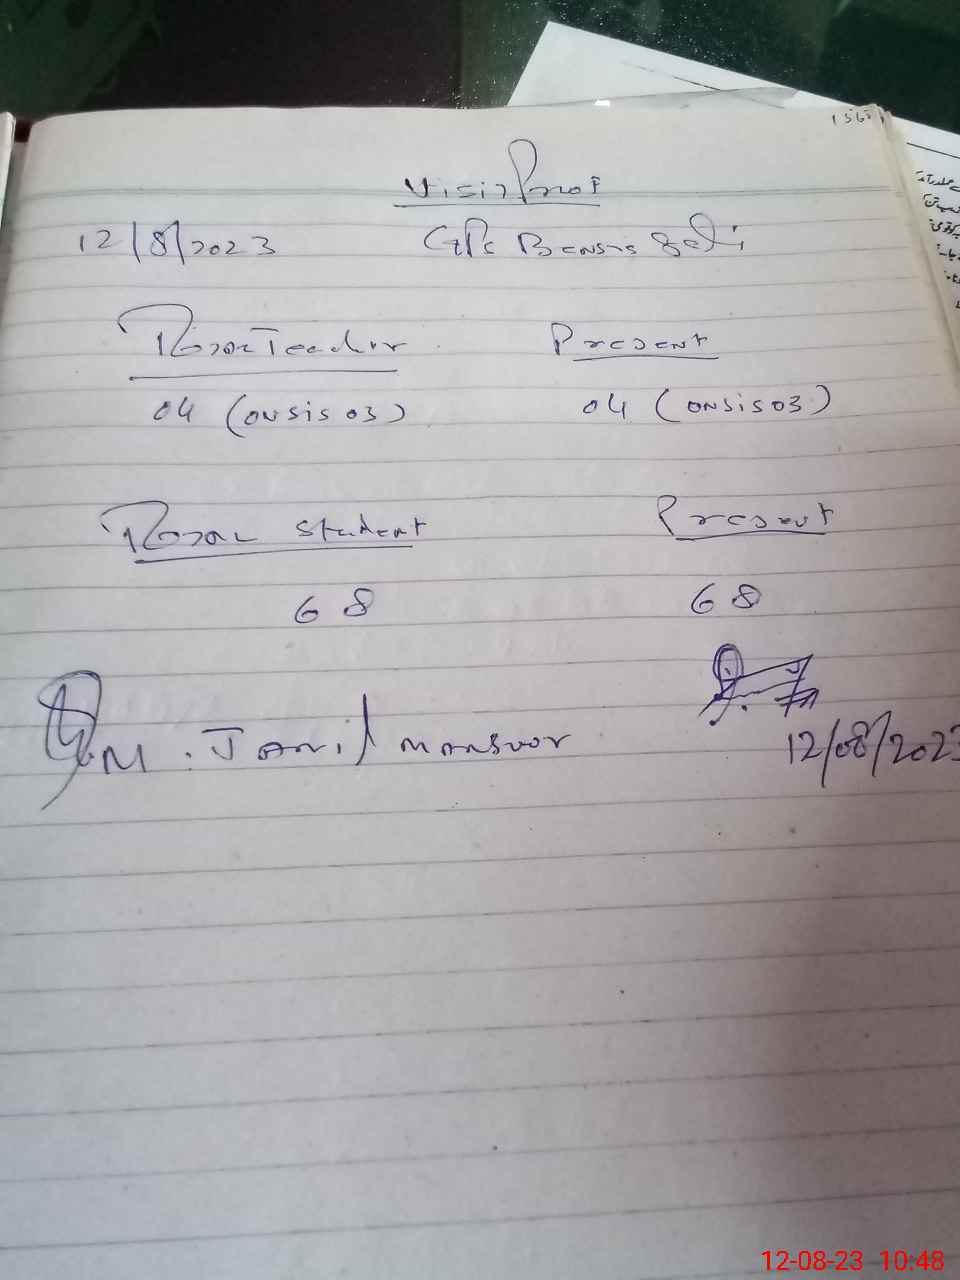 Visit Proof
12/8/2023 GPS
Total Teacher Present
04 (ONSIS 03) 04 (ONSIS 03)
Total Student Present
68 68
M. Jamil mansoor
12/08/2023
12-08-23 10:48